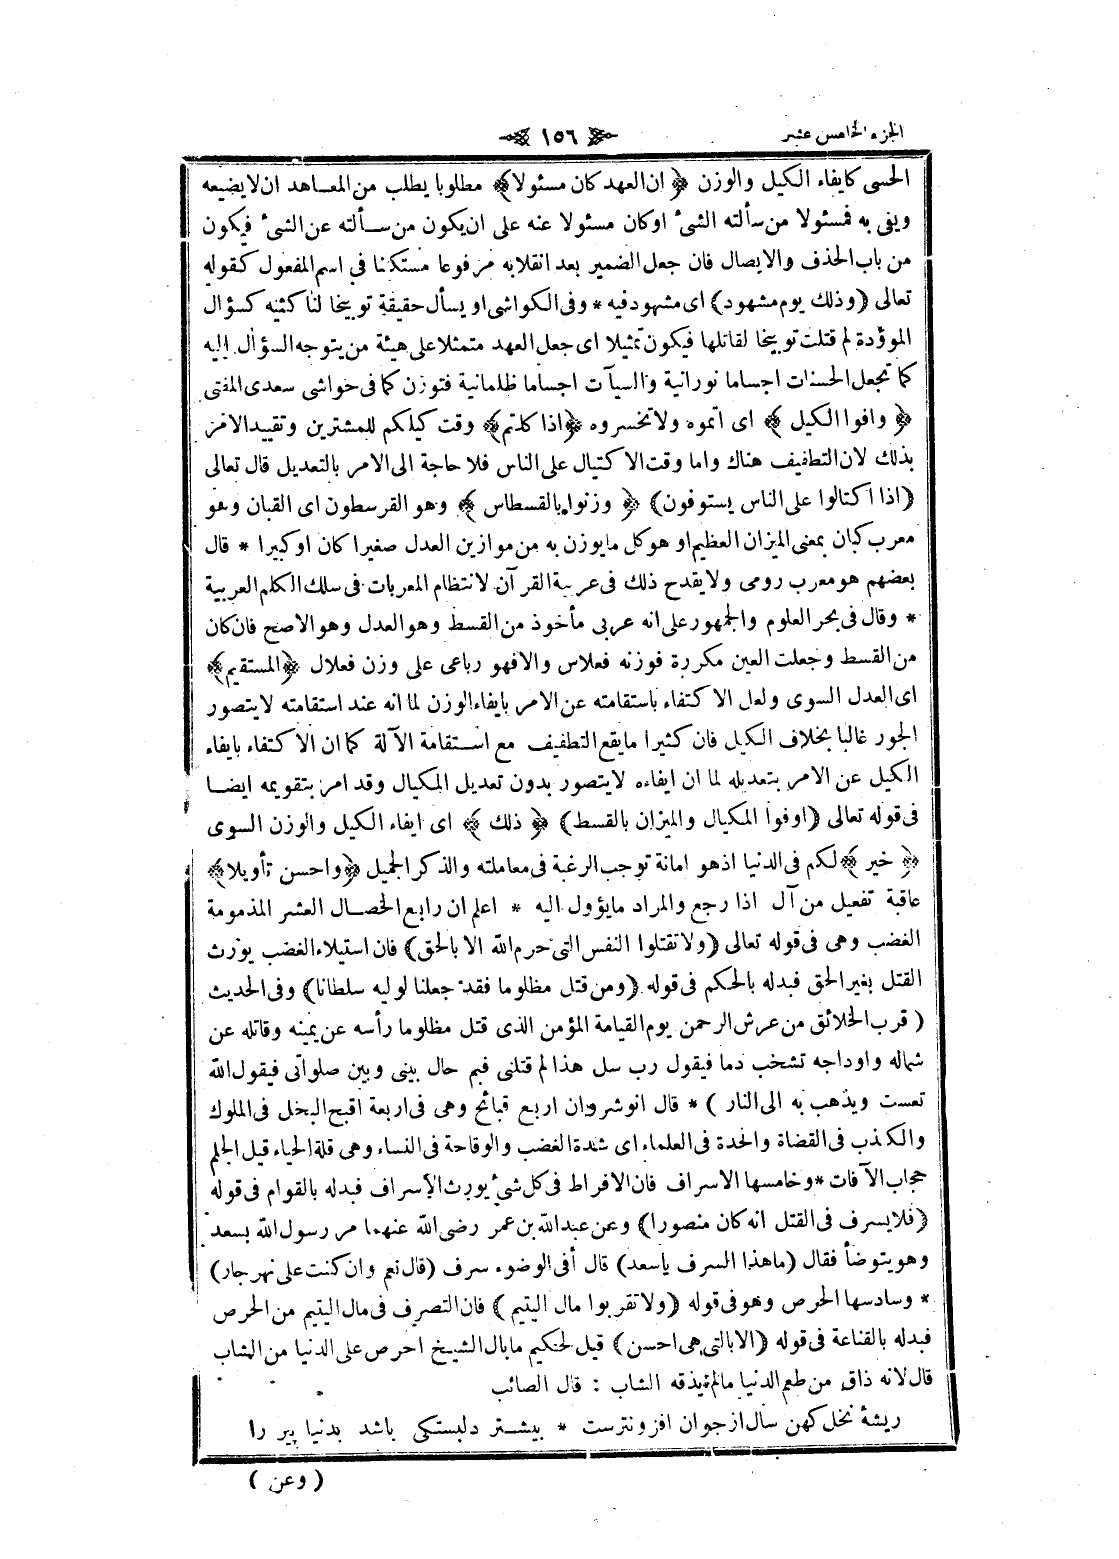 الجزء الخامس عشر
١٥٦
الحسى كايفاء الكيل والوزن ﴿ ان العهد كان مسئولا ﴾ مطلوبا يطلب من المعاهد ان لا يضيعه
ويفى به فمسئولا من سألته الشئ اوكان مسئولا عنه على ان يكون من سألته عن الشئ فيكون
من باب الحذف والايصال فان جعل الضمير بعد انقلابه مرفوعا مستكنا فى اسم المفعول كقوله
تعالى (وذلك يوم مشهود) اى مشهود فيه * وفى الكواشى او يسأل حقيقة توبيخا لناكثيه كسؤال
الموؤدة لم قتلت توبيخا لقاتلها فيكون تمثيلا اى جعل العهد متمثلا على هيئة من يتوجه السؤال اليه
كما تجعل الحسنات اجساما نورانية والسيآت اجساما ظلمانية فتوزن كما فى حواشى سعدى المفتى
﴿ وافوا الكيل ﴾ اى اتموه ولا تخسروه ﴿ اذا كلتم ﴾ وقت كيلكم للمشترين وتقييد الامر
بذلك لان التطفيف هناك واما وقت الاكتيال على الناس فلا حاجة الى الامر بالتعديل قال تعالى
(اذا اكتالوا على الناس يستوفون) ﴿ وزنوا بالقسطاس ﴾ وهو القرسطون اى القبان وهو
معرب كبان بمعنى الميزان العظيم او هو كل مايوزن به من موازين العدل صغيرا كان اوكبيرا * قال
بعضهم هو معرب رومى ولا يقدح ذلك فى عربية القرآن لانتظام المعربات فى سلك الكلم العربية
* وقال فى بحر العلوم والجمهور على انه عربى مأخوذ من القسط وهو العدل وهو الاصح فان كان
من القسط وجعلت العين مكررة فوزنه فعلاس والافهو رباعى على وزن فعلال ﴿ المستقيم ﴾
اى العدل السوى ولعل الاكتفاء باستقامته عن الامر بايفاء الوزن لما انه عند استقامته لا يتصور
الجور غالبا بخلاف الكيل فان كثيرا مايقع التطفيف مع استقامة الآلة كما ان الاكتفاء بايفاء
الكيل عن الامر بتعديله لما ان ايفاءه لايتصور بدون تعديل المكيال وقد امر بتقويمه ايضا
فى قوله تعالى (اوفوا المكيال والميزان بالقسط) ﴿ ذلك ﴾ اى ايفاء الكيل والوزن السوى
﴿ خير ﴾ لكم فى الدنيا اذهو امانة توجب الرغبة فى معاملته والذكر الجميل ﴿ واحسن تأويلا ﴾
عاقبة تفعيل من آل اذا رجع والمراد مايؤول اليه * اعلم ان رابع الخصال العشر المذمومة
الغضب وهى فى قوله تعالى (ولا تقتلوا النفس التى حرم الله الا بالحق) فان استيلاء الغضب يورث
القتل بغير الحق فبدله بالحكم فى قوله (ومن قتل مظلوما فقد جعلنا لوليه سلطانا) وفى الحديث
( قرب الخلائق من عرش الرحمن يوم القيامة المؤمن الذى قتل مظلوما رأسه عن يمينه وقاتله عن
شماله واوداجه تشخب دما فيقول رب سل هذا لم قتلنى فبم حال بينى وبين صلواتى فيقول الله
تعست ويذهب به الى النار ) * قال انوشروان اربع قبائح وهى فى اربعة اقبح البخل فى الملوك
والكذب فى القضاة والحدة فى العلماء اى شدة الغضب والوقاحة فى النساء وهى قلة الحياء قيل الحلم
حجاب الآفات * وخامسها الاسراف فان الافراط فى كل شئ يورث الاسراف فبدله بالقوام فى قوله
(فلا يسرف فى القتل انه كان منصورا) وعن عبدالله بن عمر رضى الله عنهما مر رسول الله بسعد
وهو يتوضأ فقال (ماهذا السرف ياسعد) قال أفى الوضوء سرف (قال نعم وان كنت على نهر جار)
* وسادسها الحرص وهو فى قوله (ولا تقربوا مال اليتيم ) فان التصرف فى مال اليتيم من الحرص
فبدله بالقناعة فى قوله (الا بالتى هى احسن) قيل لحكيم مابال الشيخ احرص على الدنيا من الشاب
قال لانه ذاق من طعم الدنيا مالم يذقه الشاب : قال الصائب
ريشۀ نخل كهن سال از جوان افزونترست * بيشتر دلبستگى باشد بدنيا پير را
( وعن )